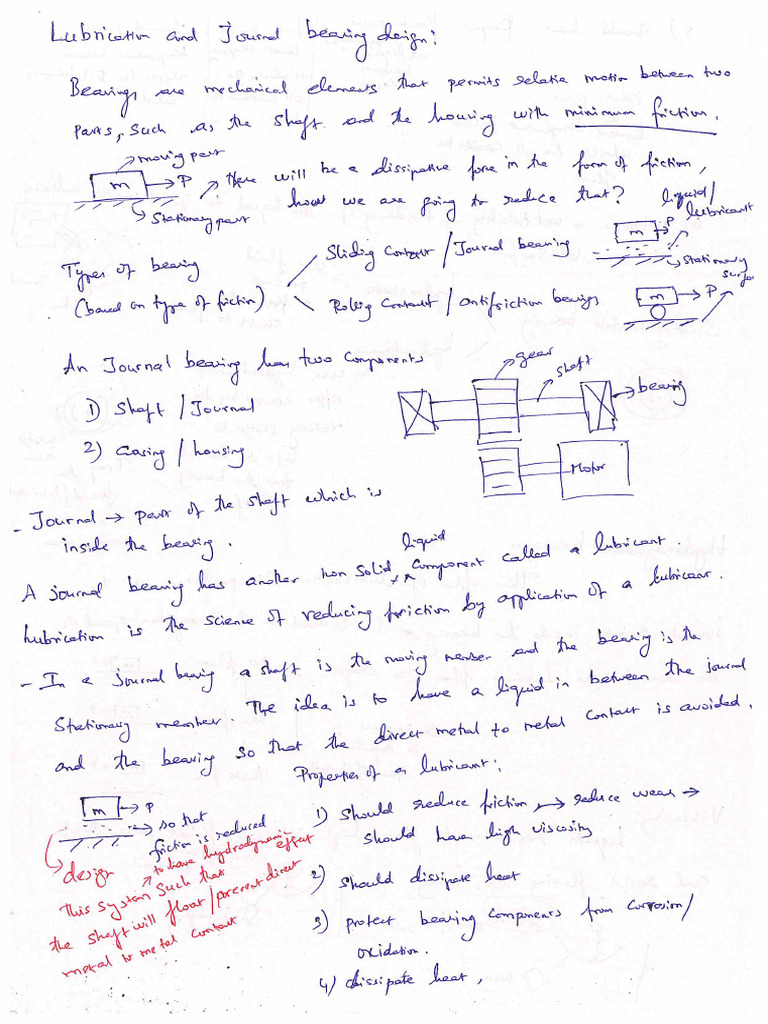 Lubrication and Journal bearing design:
Bearings are mechanical elements that permits relative motion between two
parts, such as the shaft and the housing with minimum friction.
moving part
m
P
there will be a dissipative force in the form of friction,
how we are going to reduce that?
Stationary part
liquid/
lubricant
m
P
Stationary
surface
Types of bearing
(based on type of friction)
Sliding Contact / Journal bearing
Rolling Contact / Antifriction bearings
m
P
An Journal bearing has two components
1) Shaft / Journal
2) Casing / housing
gear
shaft
bearing
Motor
- Journal → part of the shaft which is
inside the bearing.
liquid
A journal bearing has another non solid component called a lubricant.
Lubrication is the science of reducing friction by application of a lubricant.
- In a journal bearing a shaft is the moving member and the bearing is the
Stationary member. The idea is to have a liquid in between the journal
and the bearing so that the direct metal to metal contact is avoided.
m
P
so that
friction is reduced
design
to have hydrodynamic
effect
this system such that
the shaft will float/prevent direct
metal to metal contact
Properties of a lubricant:
1) Should reduce friction → reduce wear →
should have high viscosity
2) should dissipate heat
3) protect bearing components from corrosion/
oxidation.
4) dissipate heat,